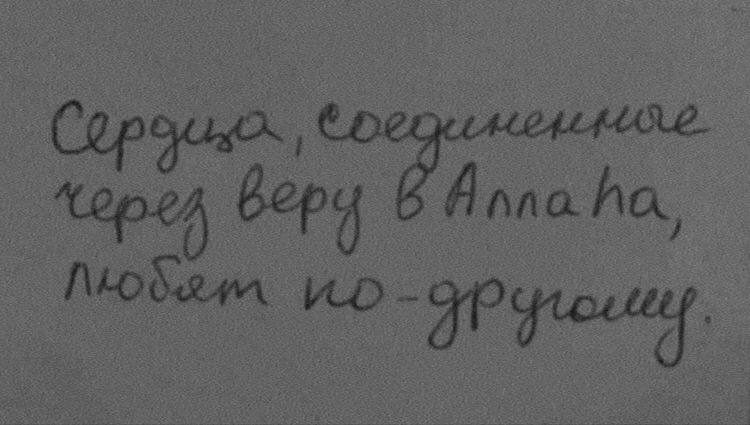 Сердца, соединенные
через веру в Аллаһа,
любят по-другому.